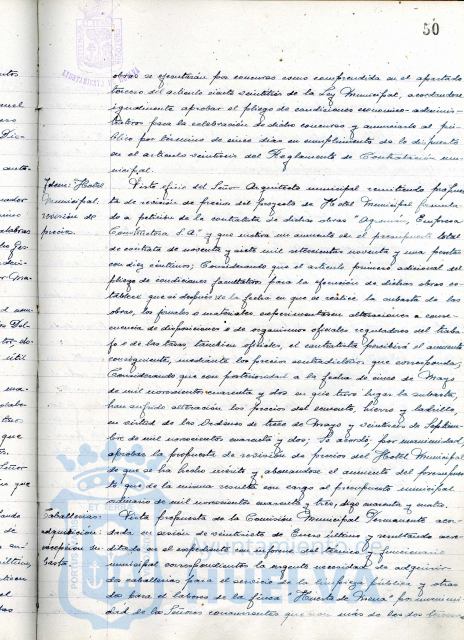 50
obras se ejecutarán por concurso como comprendida en el apartado
tercero del artículo ciento veintiseis de la Ley Municipal, acordándose
igualmente aprobar el pliego de condiciones económico-adminis-
trativas para la celebración de dicho concurso y anunciarlo al pú-
blico por término de cinco días en cumplimiento de lo dispuesto
en el artículo veintiseis del Reglamento de Contratación mu-
nicipal.
Idem: Hotel Visto oficio del Señor Arquitecto municipal remitiendo propues-
Municipal ta de revisión de precios del proyecto de Hotel Municipal formula-
revisión de da a petición de la contratista de dichas obras "Agromán, Empresa
precios. Constructora S.A." y que motiva un aumento de el presupuesto total
de contrata de noventa y siete mil setecientas noventa y una pesetas
con diez céntimos; Considerando que el artículo primero adicional del
pliego de condiciones facultativas para la ejecución de dichas obras es-
tablece que si después de la fecha en que se realice la subasta de las
obras, los jornales o materiales experimentaren alteraciones a conse-
cuencia de disposiciones o de organismos oficiales reguladores del traba-
jo o de las tasas, también oficiales, el contratista percibirá el aumento
consiguiente, mediante los precios contradictorios que correspondan;
Considerando que con posterioridad a la fecha de cinco de Mayo
de mil novecientos cuarenta y dos en que tuvo lugar la subasta,
han sufrido alteración los precios del cemento, hierro y ladrillo,
en virtud de las Ordenes de trece de Mayo y veintiseis de Septiem-
bre de mil novecientos cuarenta y dos; Se acordó, por unanimidad,
aprobar la propuesta de revisión de precios del Hotel Municipal
de que se ha hecho mérito y abonandose el aumento del presupues-
to que de la misma resulta con cargo al presupuesto municipal
ordinario de mil novecientos cuarenta y tres, digo cuarenta y cuatro.
Caballerías: Vista propuesta de la Comisión Municipal Permanente acor-
adquisición dada en sesión de veintisiete de Enero último y resultando acre-
excepción su- ditada en el expediente con informe del técnico y funcionario
basta. municipal correspondientes la urgente necesidad de adquirir
caballerías para el servicio de la limpieza pública y otras
para el laboreo de la finca "Huerta de Mena" por unanimi-
dad de los Señores concurrentes que son más de los dos tercios